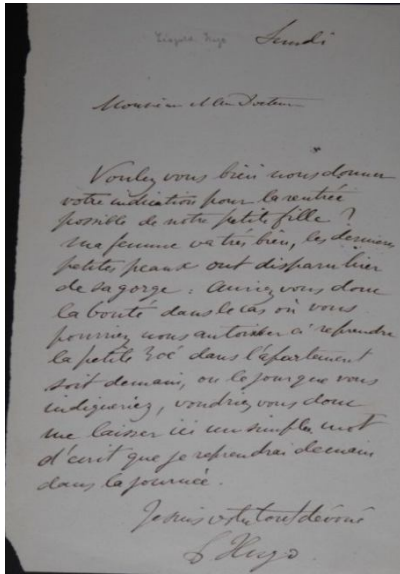 Léopold Hugo
Lundi
Monsieur et cher Docteur
Voulez vous bien nous donner
votre indication pour la rentrée
possible de notre petite fille ?
Ma femme va très bien, les dernières
petites peaux ont disparu hier
de sa gorge : auriez vous donc
la bonté dans le cas où vous
pourriez nous autoriser à reprendre
la petite Zoé dans l'apartement
soit demain, ou le jour que vous
indiqueriez, voudriez vous donc
me laisser ici un simple mot
d'ecrit que je reprendrai demain
dans la journée.
Je suis votre tout dévoué
L Hugo.